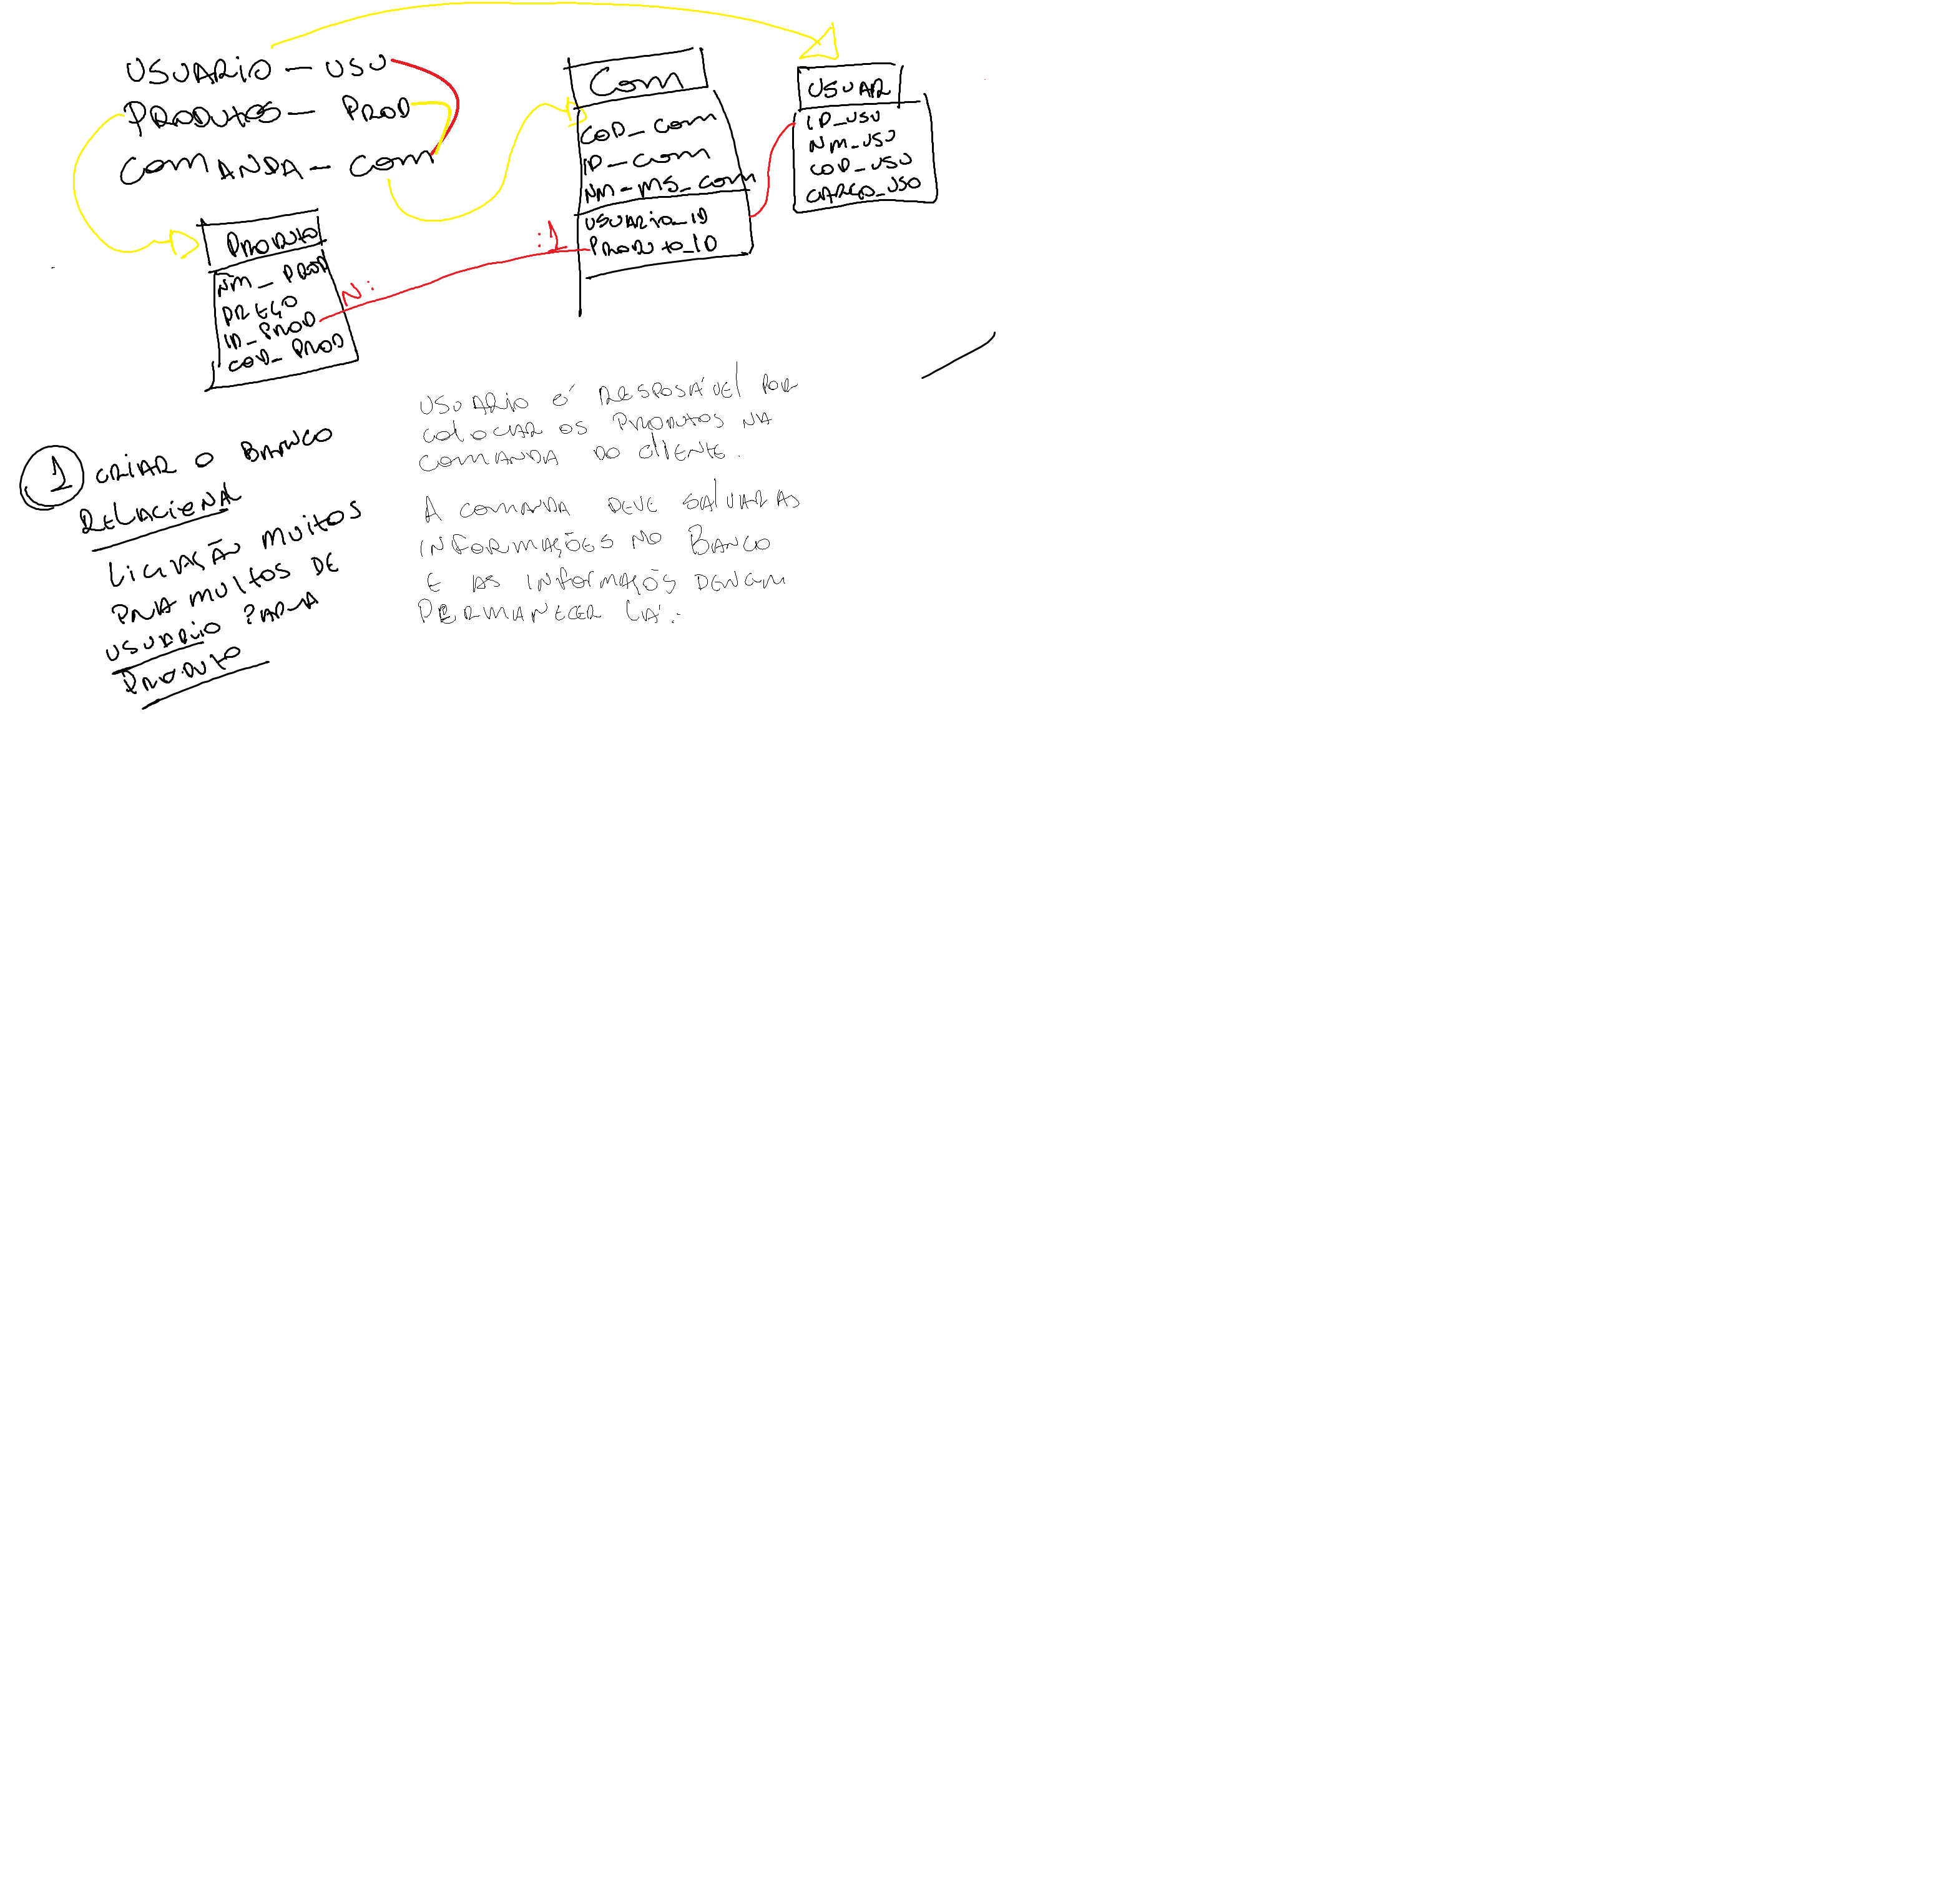 USUARIO - USU
PRODUtOS - PROD
COMANDA - COM
COM
COD_COM
ID_COM
NM-MS_COM
USUARIO_ID
PRODUtO_ID
USUAR
ID_USU
NM_USU
COD_USU
CARGO_USO
:1
N:
PRODUtO
NM_PROD
PREÇO
ID_PROD
COD_PROD
1 CRIAR O BANCO
RELACIENAL
LIGAÇÃO MUITOS
PRA MUITOS DE
USUARIO PARA
PRODUtO
USUARIO É RESPOSÁVEL POR
COLOCAR OS PRODUtOS NA
COMANDA DO CLIENTE.
A COMANDA DEVE SALVAR AS
INFORMAÇÕES NO BANCO
E AS INFORMAÇÕS DEVEM
PERMANECER LÁ.